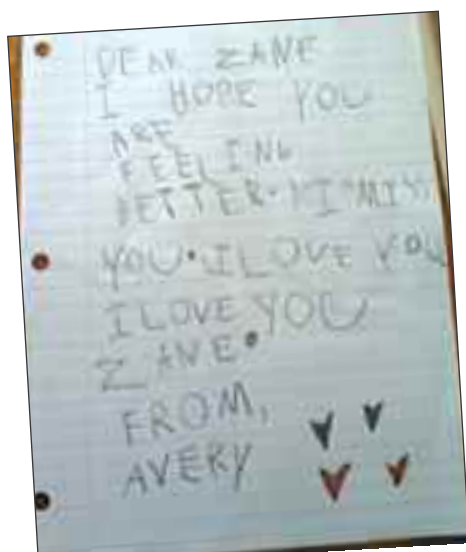 DEAR ZANE
I HOPE YOU
ARE
FEELING
BETTER. I MISS
YOU. I LOVE YOU
I LOVE YOU
ZANE.
FROM,
AVERY